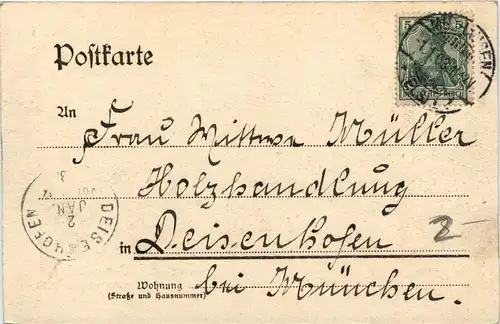 Postkarte
5 5
An
Frau Wittwe Müller
Holzhandlung
in Deisenhofen
Wohnung
(Straße und Hausnummer)
bei München.
DEISENHOFEN
2
JAN.
2